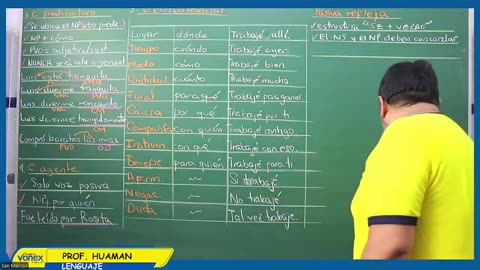 C. predicativo
NP + cómo
PVO = adjetivo/sust
NUNCA será adv
Luis está tranquilo
Luis duerme tranquilo
Luis duerme roncando
CM
PVO OD
C. agente
Solo voz pasiva
NP + por quién
Fue leído por Rosita
Lugar dónde Trabajé allí
Tiempo cuándo Trabajé ayer
Modo cómo Trabajé bien
Cantidad cuánto Trabajé mucho
Final para qué Trabajé para ganar
Causa por qué Trabajé por ti
Compañía con quién Trabajé contigo
Instrum con qué Trabajé con eso.
Benefic para quién Trabajé para ti
Afirm. Sí trabajé
Negac No trabajé
Duda Tal vez trabajé.
Pasiva refleja
estructura "SE + VERBO"
El NS y el NP deben concordar
vonex
San Marcos
PROF. HUAMAN
LENGUAJE